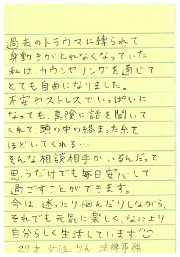 過去のトラウマに縛られて
身動きがとれなくなっていた
私は、カウンセリングを通じて
とても自由になりました。
不安やストレスでいっぱいに
なっても、真険に話を聞いて
くれて頭の中の絡まった糸を
ほどいてくれる…
そんな相談相手がいるんだって
思うだけでも毎日安心して
過ごすことができます。
今は、迷ったり悩んだりしながら、
それでも元気に楽しく、なにより
自分らしく生活しています
27才 女性 りん 法律事務